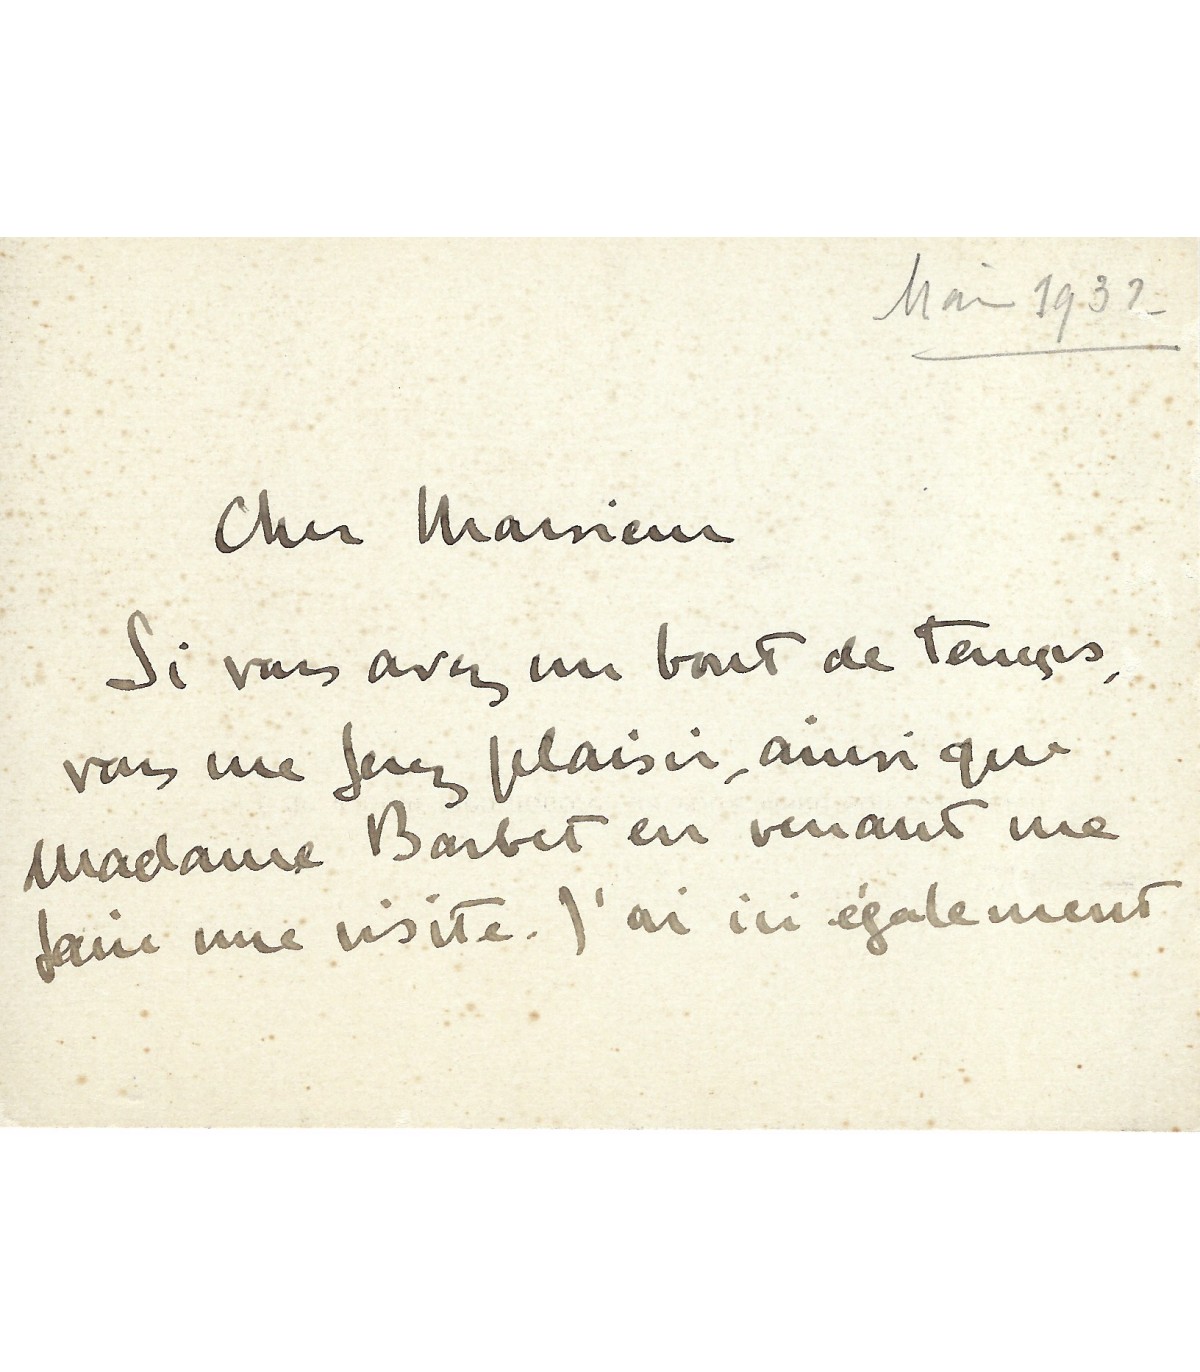 Mai 1932
Cher Monsieur
Si vous avez un bout de temps,
vous me ferez plaisir, ainsi que
Madame Barbet en venant me
faire une visite. J'ai ici également